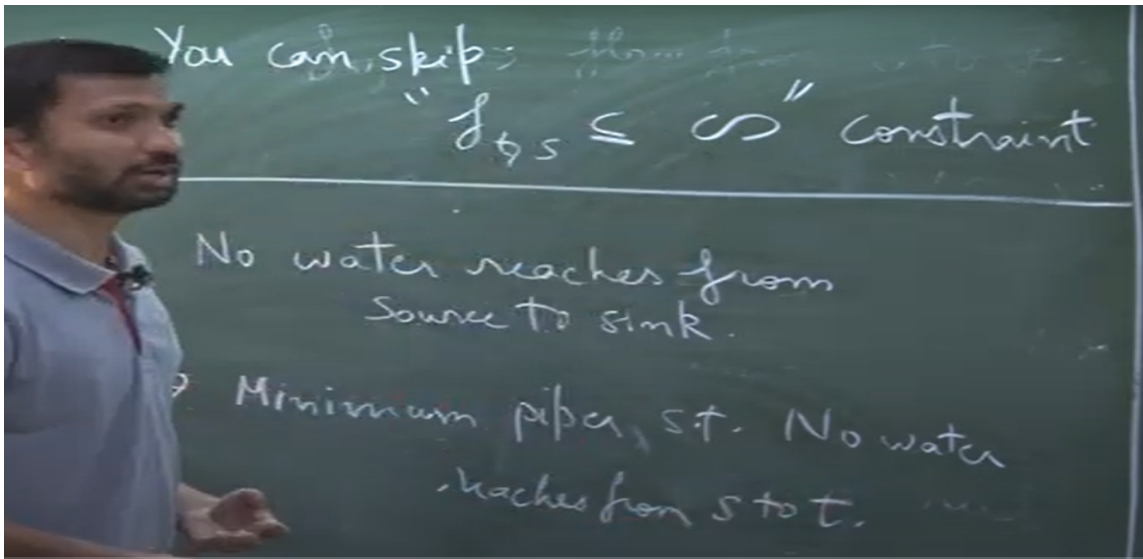 You can skip:
"f t,s ≤ ∞" constraint
No water reaches from
source to sink.
Minimum pipes, s.t. No water
reaches from s to t.